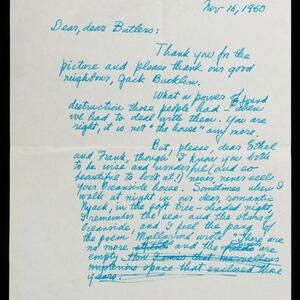 Nov 16, 1960
Dear, dear Butlers:
Thank you for the
picture and please thank our good
neighbour, Jack Bucklin.
What a power of
destruction those people had - even
we had to deal with them. You are
right, it is not "the house" any more.
But, please, dear Ethel
and Frank, though I know you both
to be wise and wonderful (and so
beautiful to look at!) never, never sell
your Oceanside house. Sometimes when I
walk at night in our dear, romantic
Nyack, in the post tree-shaded night
I remember the sea and the stars of
Oceanside, and I feel the pang of
the poem Mullarine wrote - There are
no more and the are
empty. How I miss that marvellous
mysterious space that enclosed those
years.